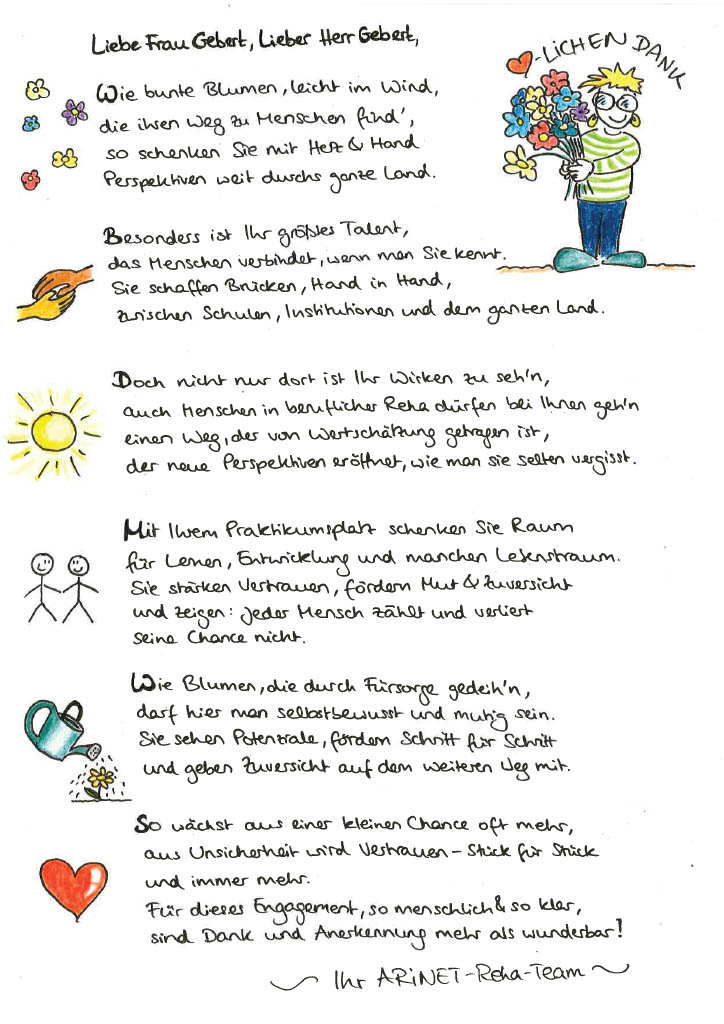 Liebe Frau Gebert, Lieber Herr Gebert,
-LICHEN DANK
Wie bunte Blumen, leicht im Wind,
die ihren Weg zu Menschen find',
so schenken Sie mit Herz & Hand
Perspektiven weit durchs ganze Land.
Besonders ist Ihr größtes Talent,
das Menschen verbindet, wenn man Sie kennt.
Sie schaffen Brücken, Hand in Hand,
zwischen Schulen, Institutionen und dem ganzen Land.
Doch nicht nur dort ist Ihr Wirken zu seh'n,
auch Menschen in beruflicher Reha dürfen bei Ihnen geh'n
einen Weg, der von Wertschätzung getragen ist,
der neue Perspektiven eröffnet, wie man sie selten vergisst.
Mit Ihrem Praktikumsplatz schenken Sie Raum
für Lernen, Entwicklung und manchen Lebenstraum.
Sie stärken Vertrauen, fördern Mut & Zuversicht
und zeigen: jeder Mensch zählt und verliert
seine Chance nicht.
Wie Blumen, die durch Fürsorge gedeih'n,
darf hier man selbstbewusst und mutig sein.
Sie sehen Potenziale, fördern Schritt für Schritt
und geben Zuversicht auf dem weiteren Weg mit.
So wächst aus einer kleinen Chance oft mehr,
aus Unsicherheit wird Vertrauen – Stück für Stück
und immer mehr.
Für dieses Engagement, so menschlich & so klar,
sind Dank und Anerkennung mehr als wunderbar!
~ Ihr ARiNET-Reha-Team ~